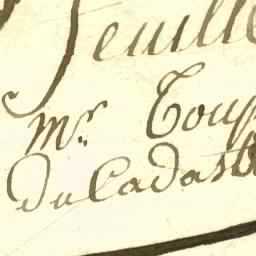 Feuille
Mr. Toup
du Cadast